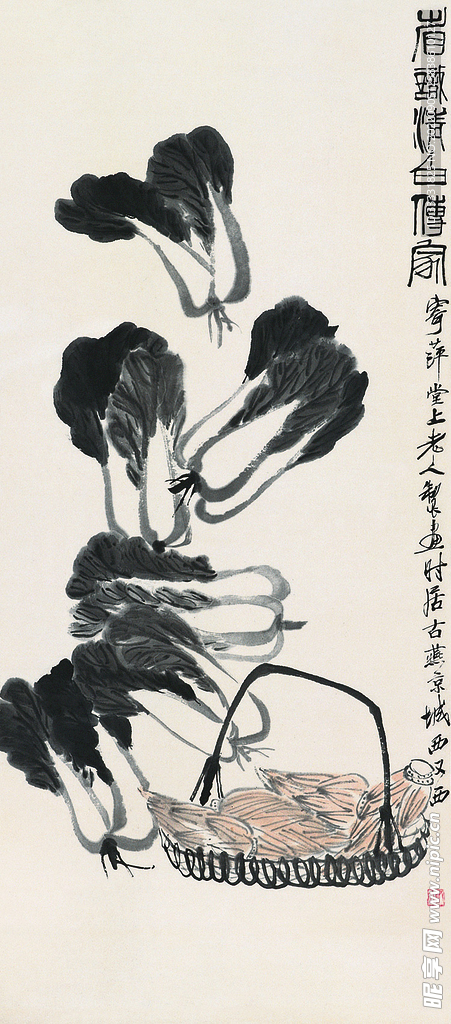 省識清白傳家
寄萍堂上老人製畫时居古燕京城西又西
昵享网 www.nipic.cn